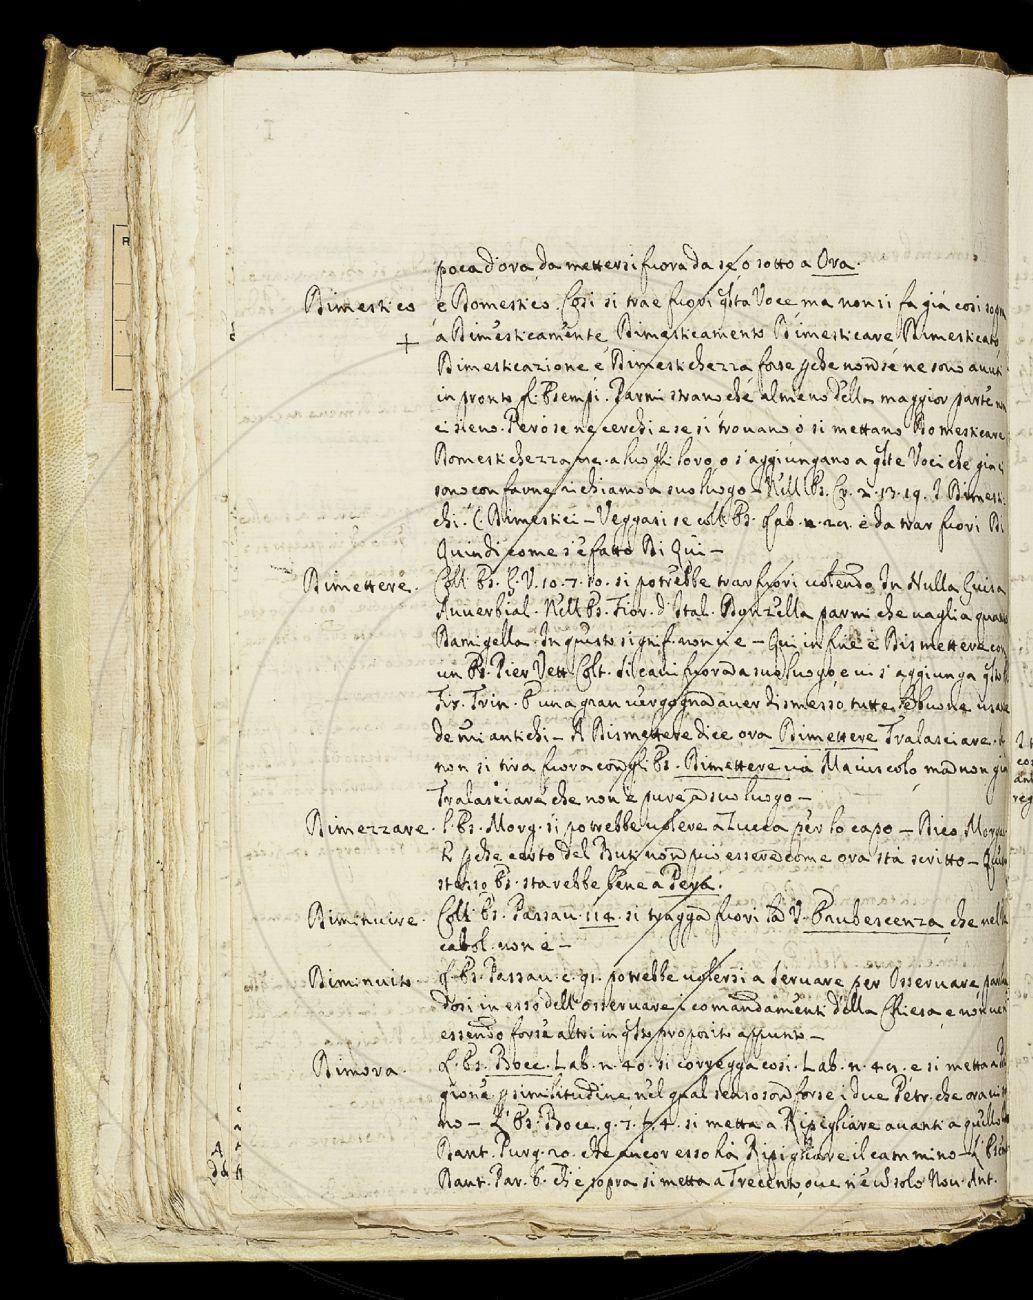 poca d'ora da mettersi fuora da se o sotto a Ora.
Dimestico e Domestico. Cosi si trae fuori qsta Voce ma non si fa già cosi sopra
+ a Dimesticamente Dimesticamento Dimesticare Dimesticato
Dimesticazione e Dimestichezza forse pche non se ne sono avuti
in pronto gl'Esempi. Parmi strano che almeno della maggior parte non
ci sieno. Però se ne cerchi e se si trovano o si mettano Domesticare
Domestichezza ne a luoghi loro o s'aggiungano a qste Voci che già ci
sono con farne richiamo a suo luogo - Nell'Es. Cr. 2. 13. 19. I Dimesti
chi. l. Dimestici - Veggasi se coll'Es. Lab. n. 29. è da trar fuori Di
Quindi come s'è fatto Di Qui -
Dimettere. Coll'Es. G. V. 10. 7. 10. si potrebbe trar fuori volendo In Nulla Guisa
Avverbial. Nell'Es. Fior. d'Ital. Donzella parmi che vaglia quanto
Damigella. In questo signif. non v'è - Qui in fine è Dismettere con
un Es. Pier Vett. Colt. Si cavi fuora a suo luogo e vi s'aggiunga qsto
Fir. Trin. E una gran vergogna aver dismesso tutte le buone usanze
de vri antichi - A Dismettere dice ora Dimettere Tralasciare.
non si tira fuora con gl'Es. Dimettere via Maiuscolo ma non già
Tralasciare che non è pure a suo luogo -
Dimezzare. l'Es. Morg. si potrebbe volere a Zucca per lo capo - Dico Morga
te pche certo del Buti non può essere come ora sta scritto - Questo
stesso Es. starebbe bene a Pera.
Diminuire. Coll'Es. Passav. 114. si tragga fuori la V. Erubescenza che nel
cabol. non è -
Diminuito. L'Es. Passav. c. 91. potrebbe volersi a Servare per Osservare parlan
dosi in esso dell'osservare i comandamenti della Chiesa e non vi
essendo forse altri in qsto proposito appunto -
Dimora. L'Es. Bocc. Lab. n. 40. si corregga cosi. Lab. n. 49. e si metta a
gione p similitudine nel qual senso son forse i due Petr. che ora vi
no - L'Es. Bocc. g. 7. f. 4. si metta a Ripigliare avanti a quello
Dant. Purg. 20. che ancor esso ha Ripigliare il cammino - L'Es.
Dant. Par. 6. ch'è sopra si metta a Trecento ove n'è un solo Nov. Ant.